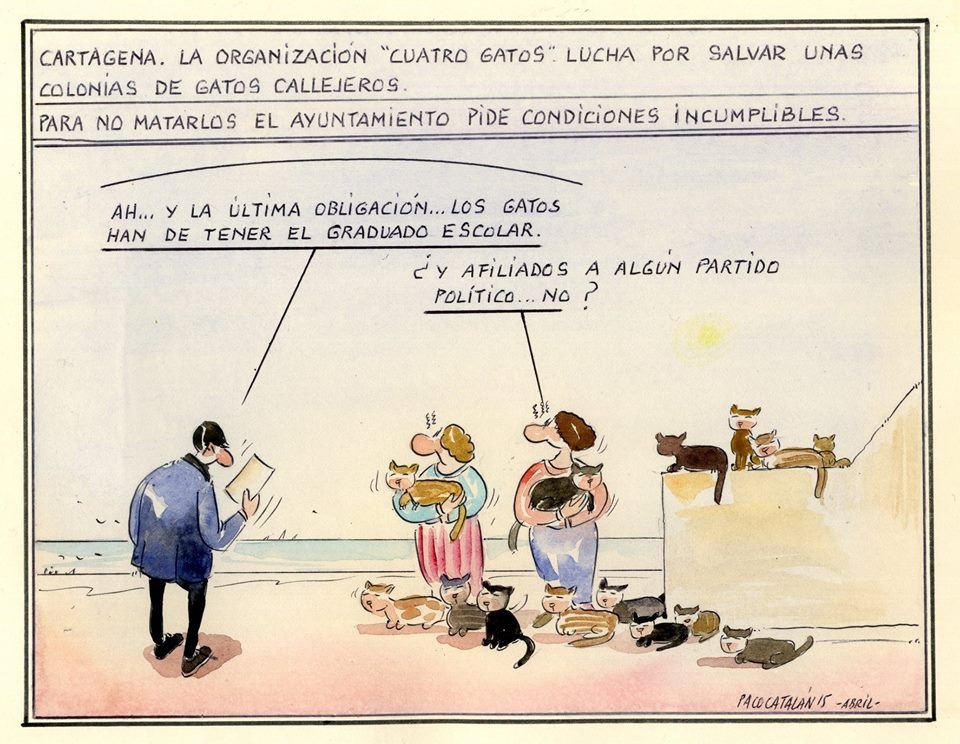 CARTAGENA. LA ORGANIZACIÓN "CUATRO GATOS". LUCHA POR SALVAR UNAS
COLONIAS DE GATOS CALLEJEROS.
PARA NO MATARLOS EL AYUNTAMIENTO PIDE CONDICIONES INCUMPLIBLES.
AH... Y LA ÚLTIMA OBLIGACIÓN... LOS GATOS
HAN DE TENER EL GRADUADO ESCOLAR.
¿Y AFILIADOS A ALGÚN PARTIDO
POLÍTICO... NO?
PACO CATALÁN 15 -ABRIL-